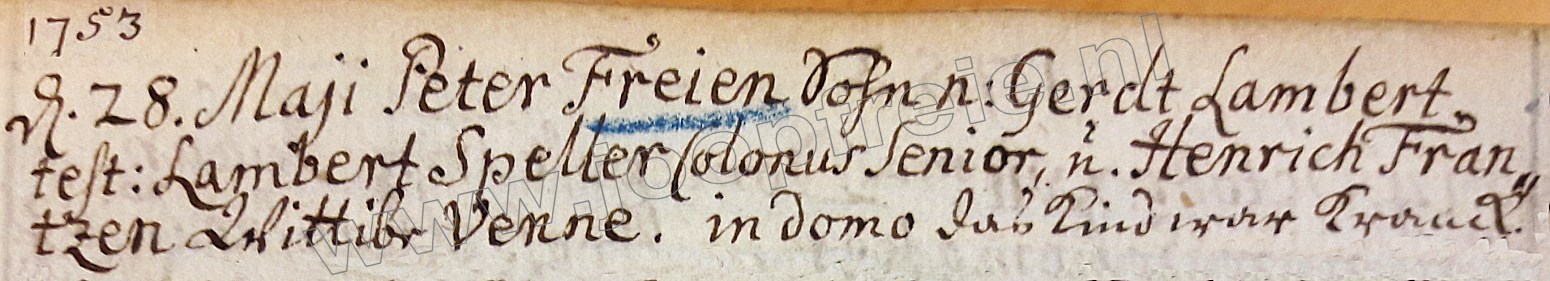 1753
d. 28. Maji Peter Freien Sohn n: Gerdt Lambert,
test: Lambert Speller Colonus Senior, u. Henrich Fran„
tzen Wittibe Venne. in domo das Kind war Kranck.
www.joopfreie.nl